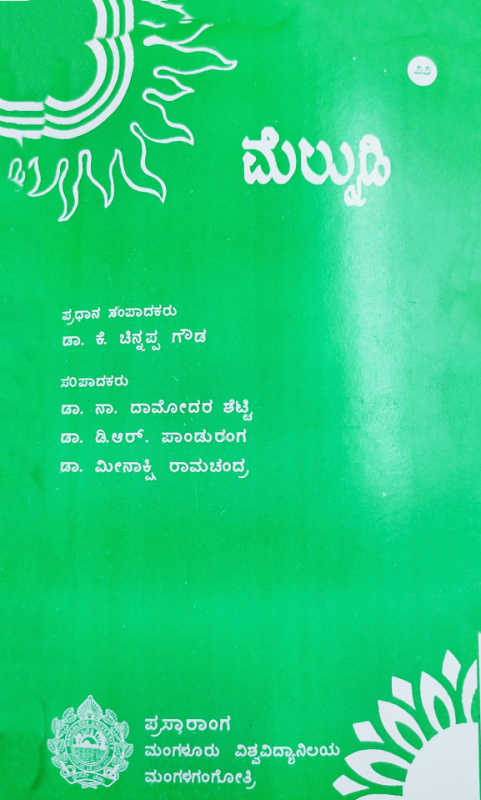 ೨೨
ಮೆಲ್ನುಡಿ
ಪ್ರಧಾನ ಸಂಪಾದಕರು
ಡಾ. ಕೆ. ಚಿನ್ನಪ್ಪ ಗೌಡ
ಸಂಪಾದಕರು
ಡಾ. ನಾ. ದಾಮೋದರ ಶೆಟ್ಟಿ
ಡಾ. ಡಿ.ಆರ್. ಪಾಂಡುರಂಗ
ಡಾ. ಮೀನಾಕ್ಷಿ ರಾಮಚಂದ್ರ
ಪ್ರಸಾರಾಂಗ
ಮಂಗಳೂರು ವಿಶ್ವವಿದ್ಯಾನಿಲಯ
ಮಂಗಳಗಂಗೋತ್ರಿ